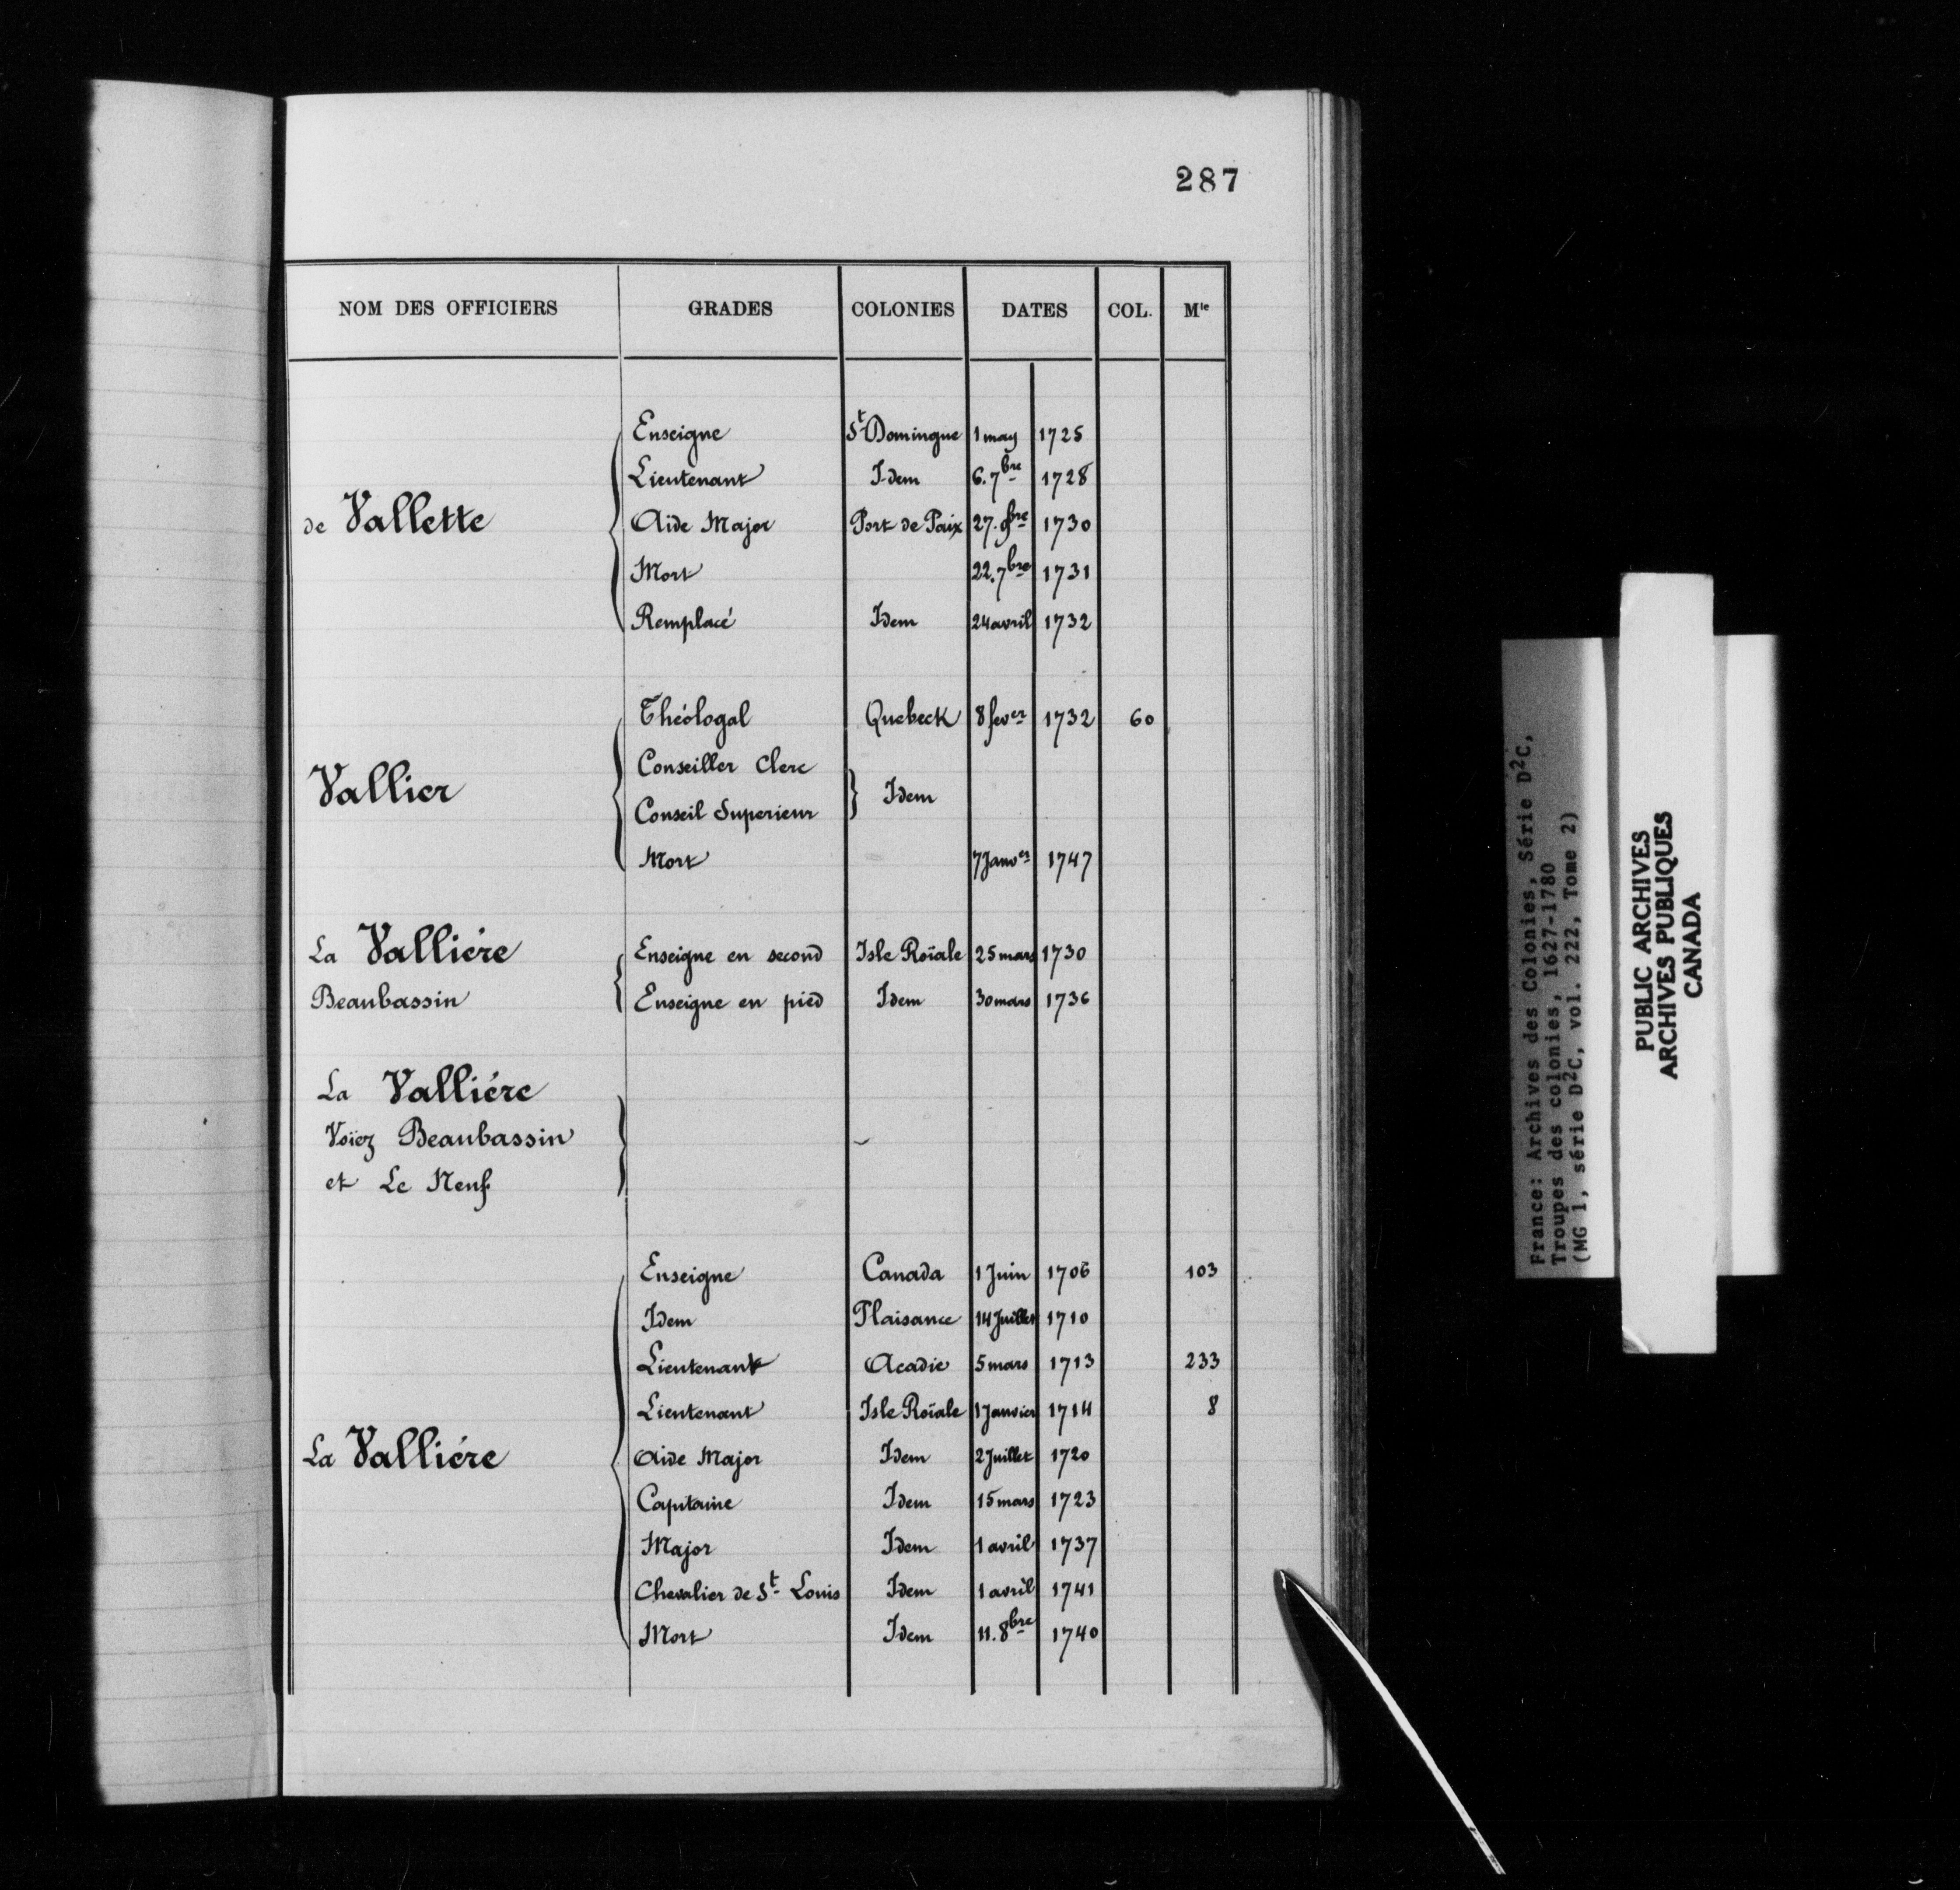 287
NOM DES OFFICIERS GRADES COLONIES DATES COL. Mle
de Vallette
Enseigne St Domingue 1 may 1725
Lieutenant Idem 6. 7bre 1728
Aide Major Port de Paix 27. 9bre 1730
Mort 22. 7bre 1731
Remplacé Idem 24 avril 1732
Vallier
Théologal Quebeck 8 fever 1732 60
Conseiller Clerc
Conseil Superieur
Idem
Mort 7 Janver 1747
La Valliére Enseigne en second Isle Roïale 25 mars 1730
Beaubassin Enseigne en pied Idem 30 mars 1736
La Valliére
Voïez Beaubassin
et Le Neuf
La Valliére
Enseigne Canada 1 Juin 1706 103
Idem Plaisance 14 Juillet 1710
Lieutenant Acadie 5 mars 1713 233
Lieutenant Isle Roïale 1 Janvier 1714 8
Aide Major Idem 2 Juillet 1720
Capitaine Idem 15 mars 1723
Major Idem 1 avril 1737
Chevalier de St Louis Idem 1 avril 1741
Mort Idem 11. 8bre 1740
France: Archives des Colonies, Série D2C,
Troupes des colonies, 1627-1780
(MG 1, série D2C, vol. 222, Tome 2)
PUBLIC ARCHIVES
ARCHIVES PUBLIQUES
CANADA